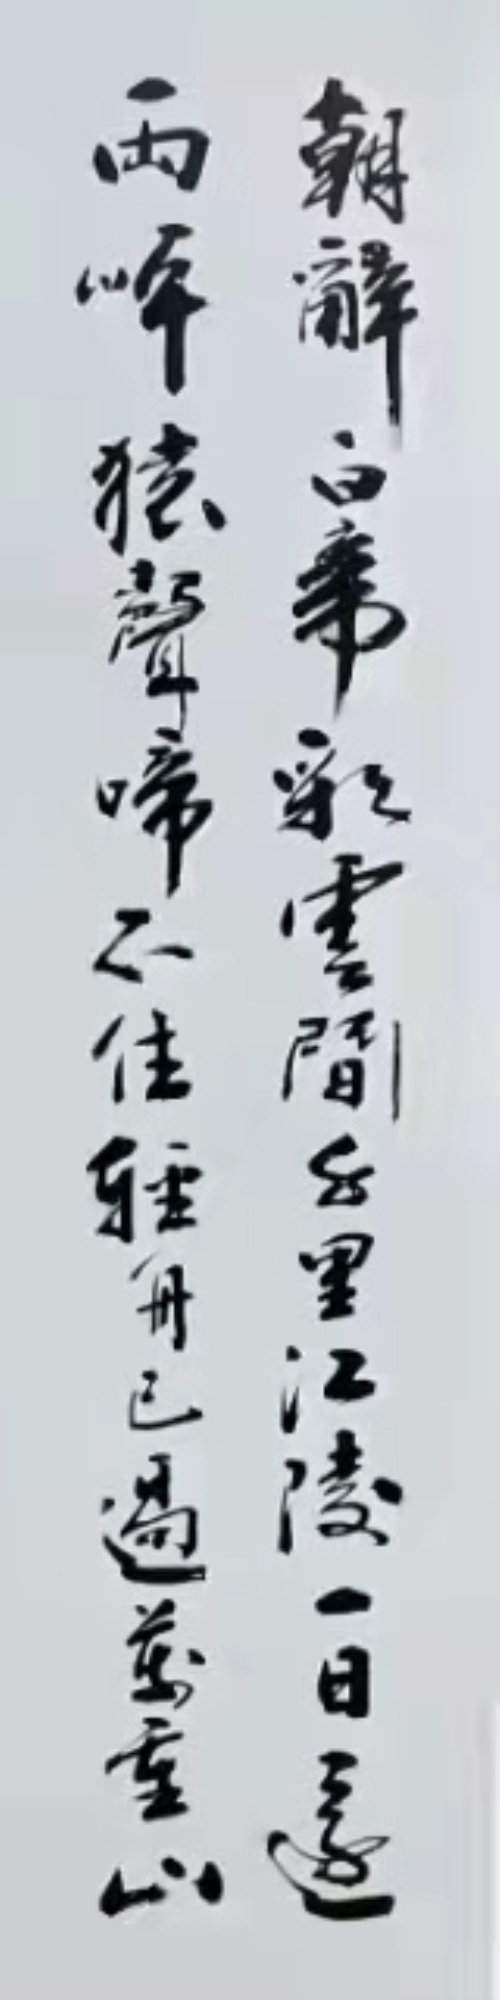 朝辭白帝彩雲間千里江陵一日還
兩岸猿聲啼不住輕舟已過萬重山